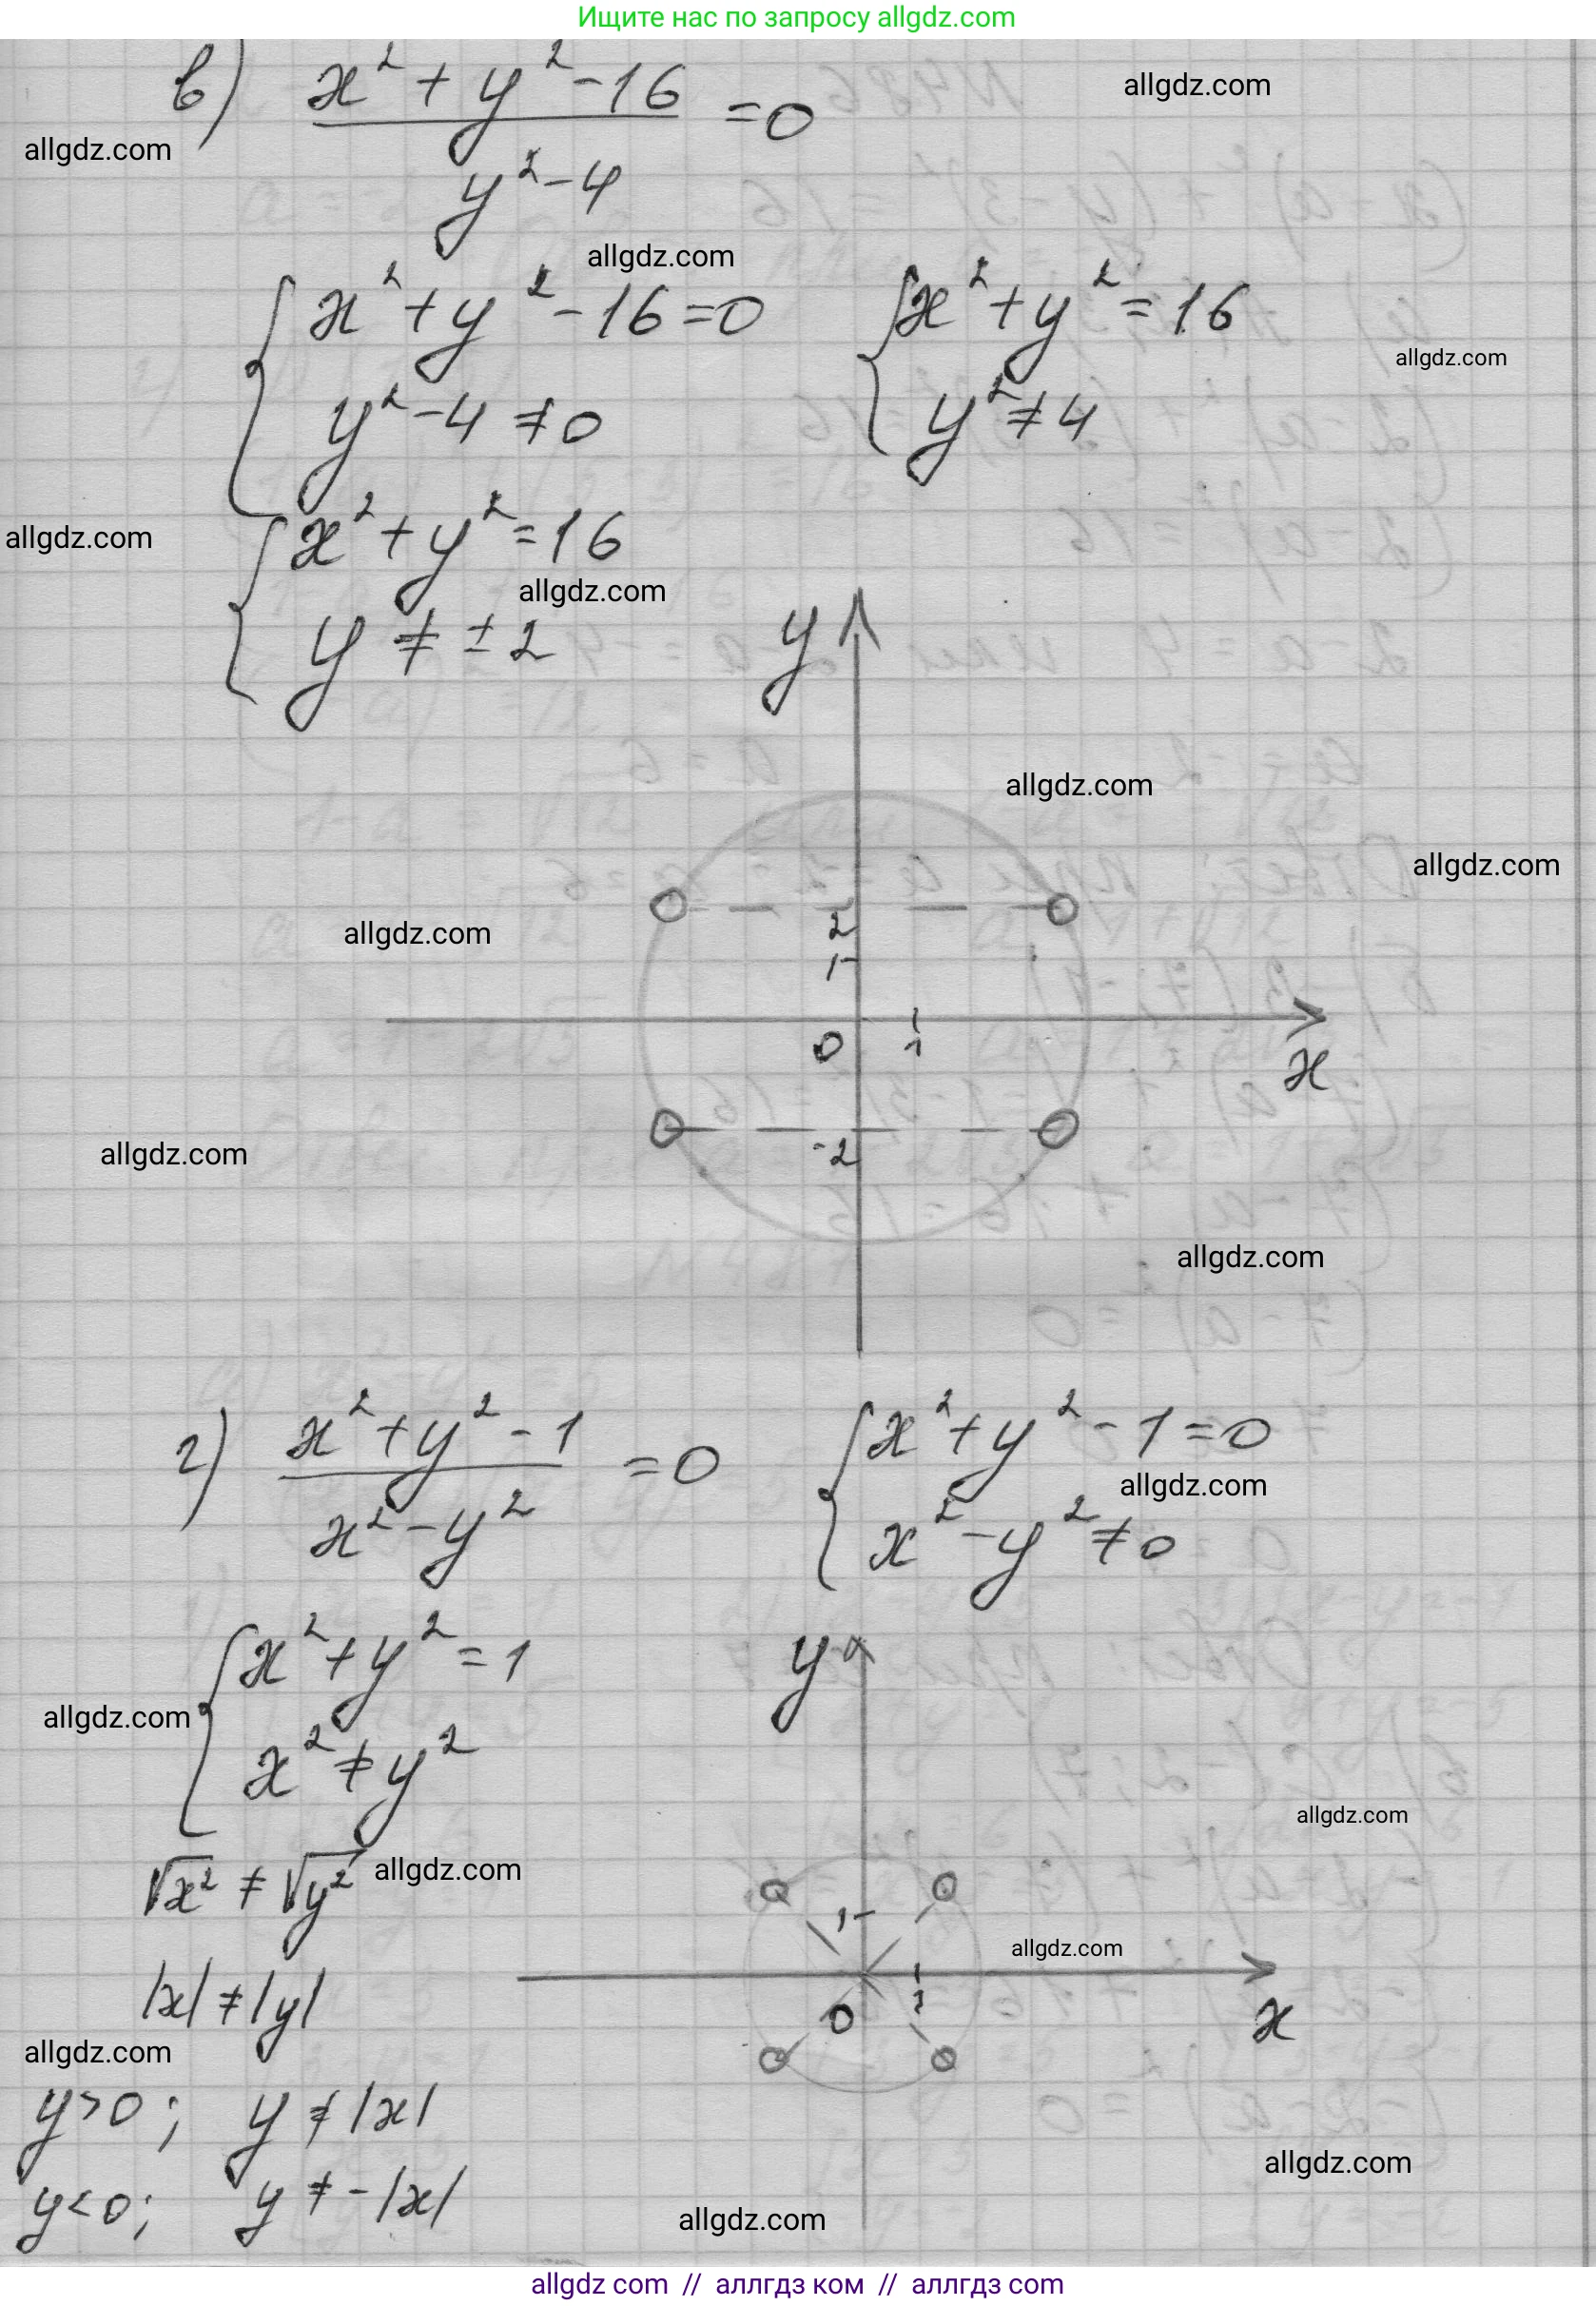 Ищите нас по запросу allgdz.com
в) (x² + y² - 16)/(y² - 4) = 0
allgdz.com
allgdz.com
allgdz.com
{ x² + y² - 16 = 0 { x² + y² = 16
allgdz.com
y² - 4 ≠ 0 y² ≠ 4
{ x² + y² = 16
allgdz.com
allgdz.com
y ≠ ± 2
y
allgdz.com
allgdz.com
2
allgdz.com
1
0 1
x
-2
allgdz.com
allgdz.com
г) (x² + y² - 1)/(x² - y²) = 0 { x² + y² - 1 = 0
allgdz.com
x² - y² ≠ 0
{ x² + y² = 1
y
allgdz.com
x² ≠ y²
allgdz.com
√x² ≠ √y² allgdz.com
1
allgdz.com
|x| ≠ |y|
0 1
x
allgdz.com
y > 0; y ≠ |x|
allgdz.com
y < 0; y ≠ -|x|
allgdz.com
allgdz com // аллгдз ком // аллгдз com